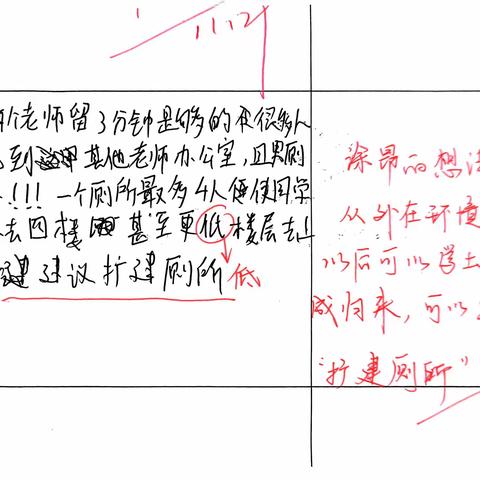 11.12
老师留3分钟是够的但很多人
到其他老师办公室,且男厕
!!!一个厕所最多4人便使同学
去四楼甚至更低楼层去上
建议扩建厕所 低
涂昂的想法
从外在环境
以后可以学土
成归来,可以
"扩建厕所"